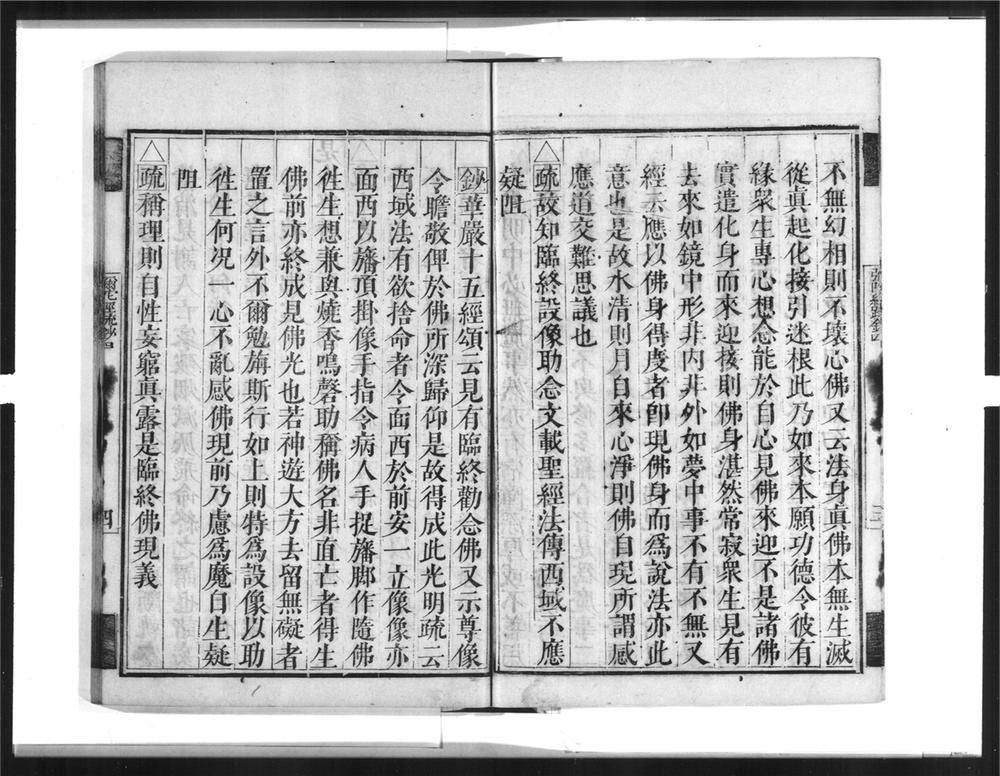 不無幻相則不壞心佛又云法身真佛本無生滅
從真起化接引迷根此乃如來本願功德令彼有
緣眾生專心想念能於自心見佛來迎不是諸佛
實遣化身而來迎接則佛身湛然常寂眾生見有
去來如鏡中形非內非外如夢中事不有不無又
經云應以佛身得度者卽現佛身而為說法亦此
意也是故水清則月自來心淨則佛自現所謂感
應道交難思議也
△疏故知臨終設像助念文載聖經法傳西域不應
疑阻
鈔華嚴十五經頌云見有臨終勸念佛又示尊像
令瞻敬俾於佛所深歸仰是故得成此光明疏云
西域法有欲捨命者令面西於前安一立像像亦
面西以旛頂掛像手指令病人手捉旛脚作隨佛
徃生想兼與燒香鳴磬助稱佛名非直亡者得生
佛前亦終成見佛光也若神遊大方去留無礙者
置之言外不爾勉旃斯行如上則特為設像以助
徃生何況一心不亂感佛現前乃慮為魔自生疑
阻
△疏稱理則自性妄窮真露是臨終佛現義
四